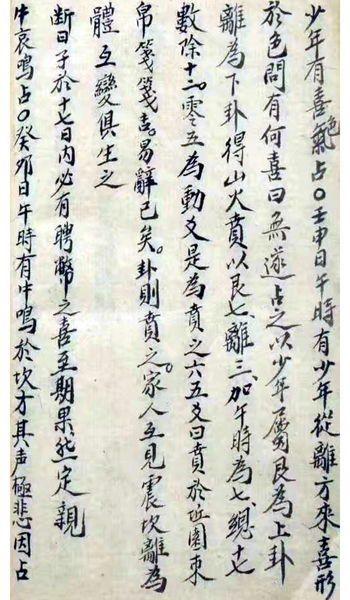 少年有喜色占〇壬申日午時有少年從離方來喜形
於色問有何喜曰無遂占之以少年屬艮為上卦
離為下卦得山火賁以艮七離三加午時為七總十七
數除十二零五為動爻是為賁之六五爻曰賁於丘園束
帛箋箋吉易辭已矣卦則賁之家人互見震坎離為
體互變俱生之
断曰子於十七日内必有聘幣之喜至期果然定親
牛哀鳴占〇癸卯日午時有牛鳴於坎方其声極悲因占